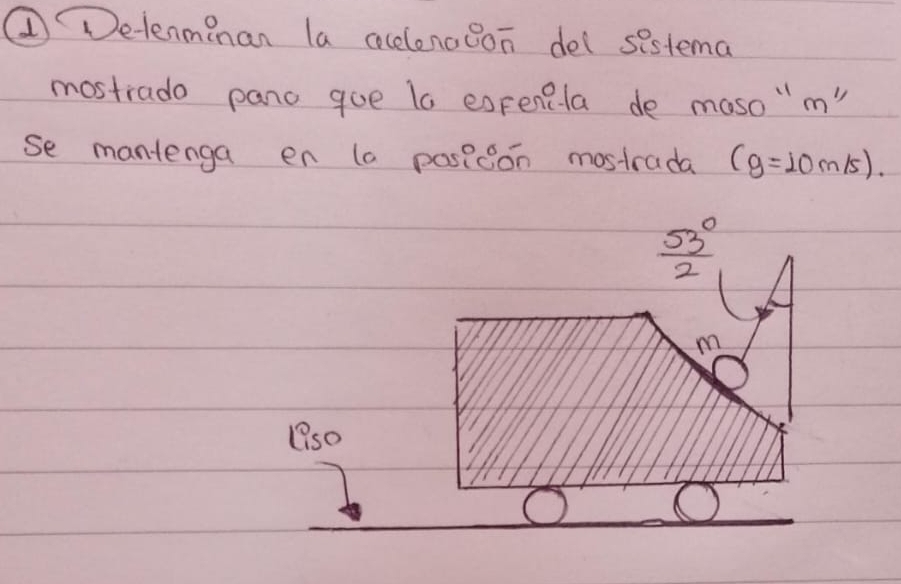 ① Determinar la aceleración del sistema
mostrado para que la esferita de masa "m"
Se mantenga en la posición mostrada (g=10m/s).
53°
2
m
Liso